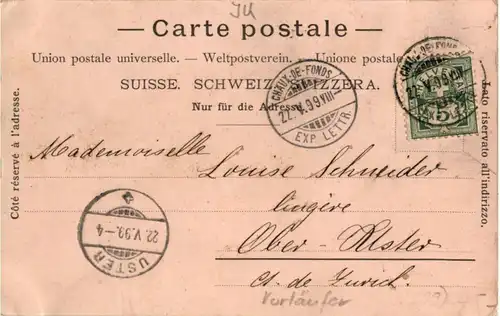 JU
— Carte postale —
Union postale universelle. — Weltpostverein. — Unione postale
SUISSE. SCHWEIZ. SVIZZERA.
Nur für die Adresse.
CHAUX-DE-FONDS
22.V.99 VIII
EXP. LETTR.
CHAUX-DE-FONDS
22.V.99 VIII
5
Côté réservé à l'adresse.
Lato riservato all'indirizzo.
Mademoiselle
Louise Schneider
lingère
Ober-Uster
Ct. de Zurich.
USTER
22.V.99.-4
Vorläufer